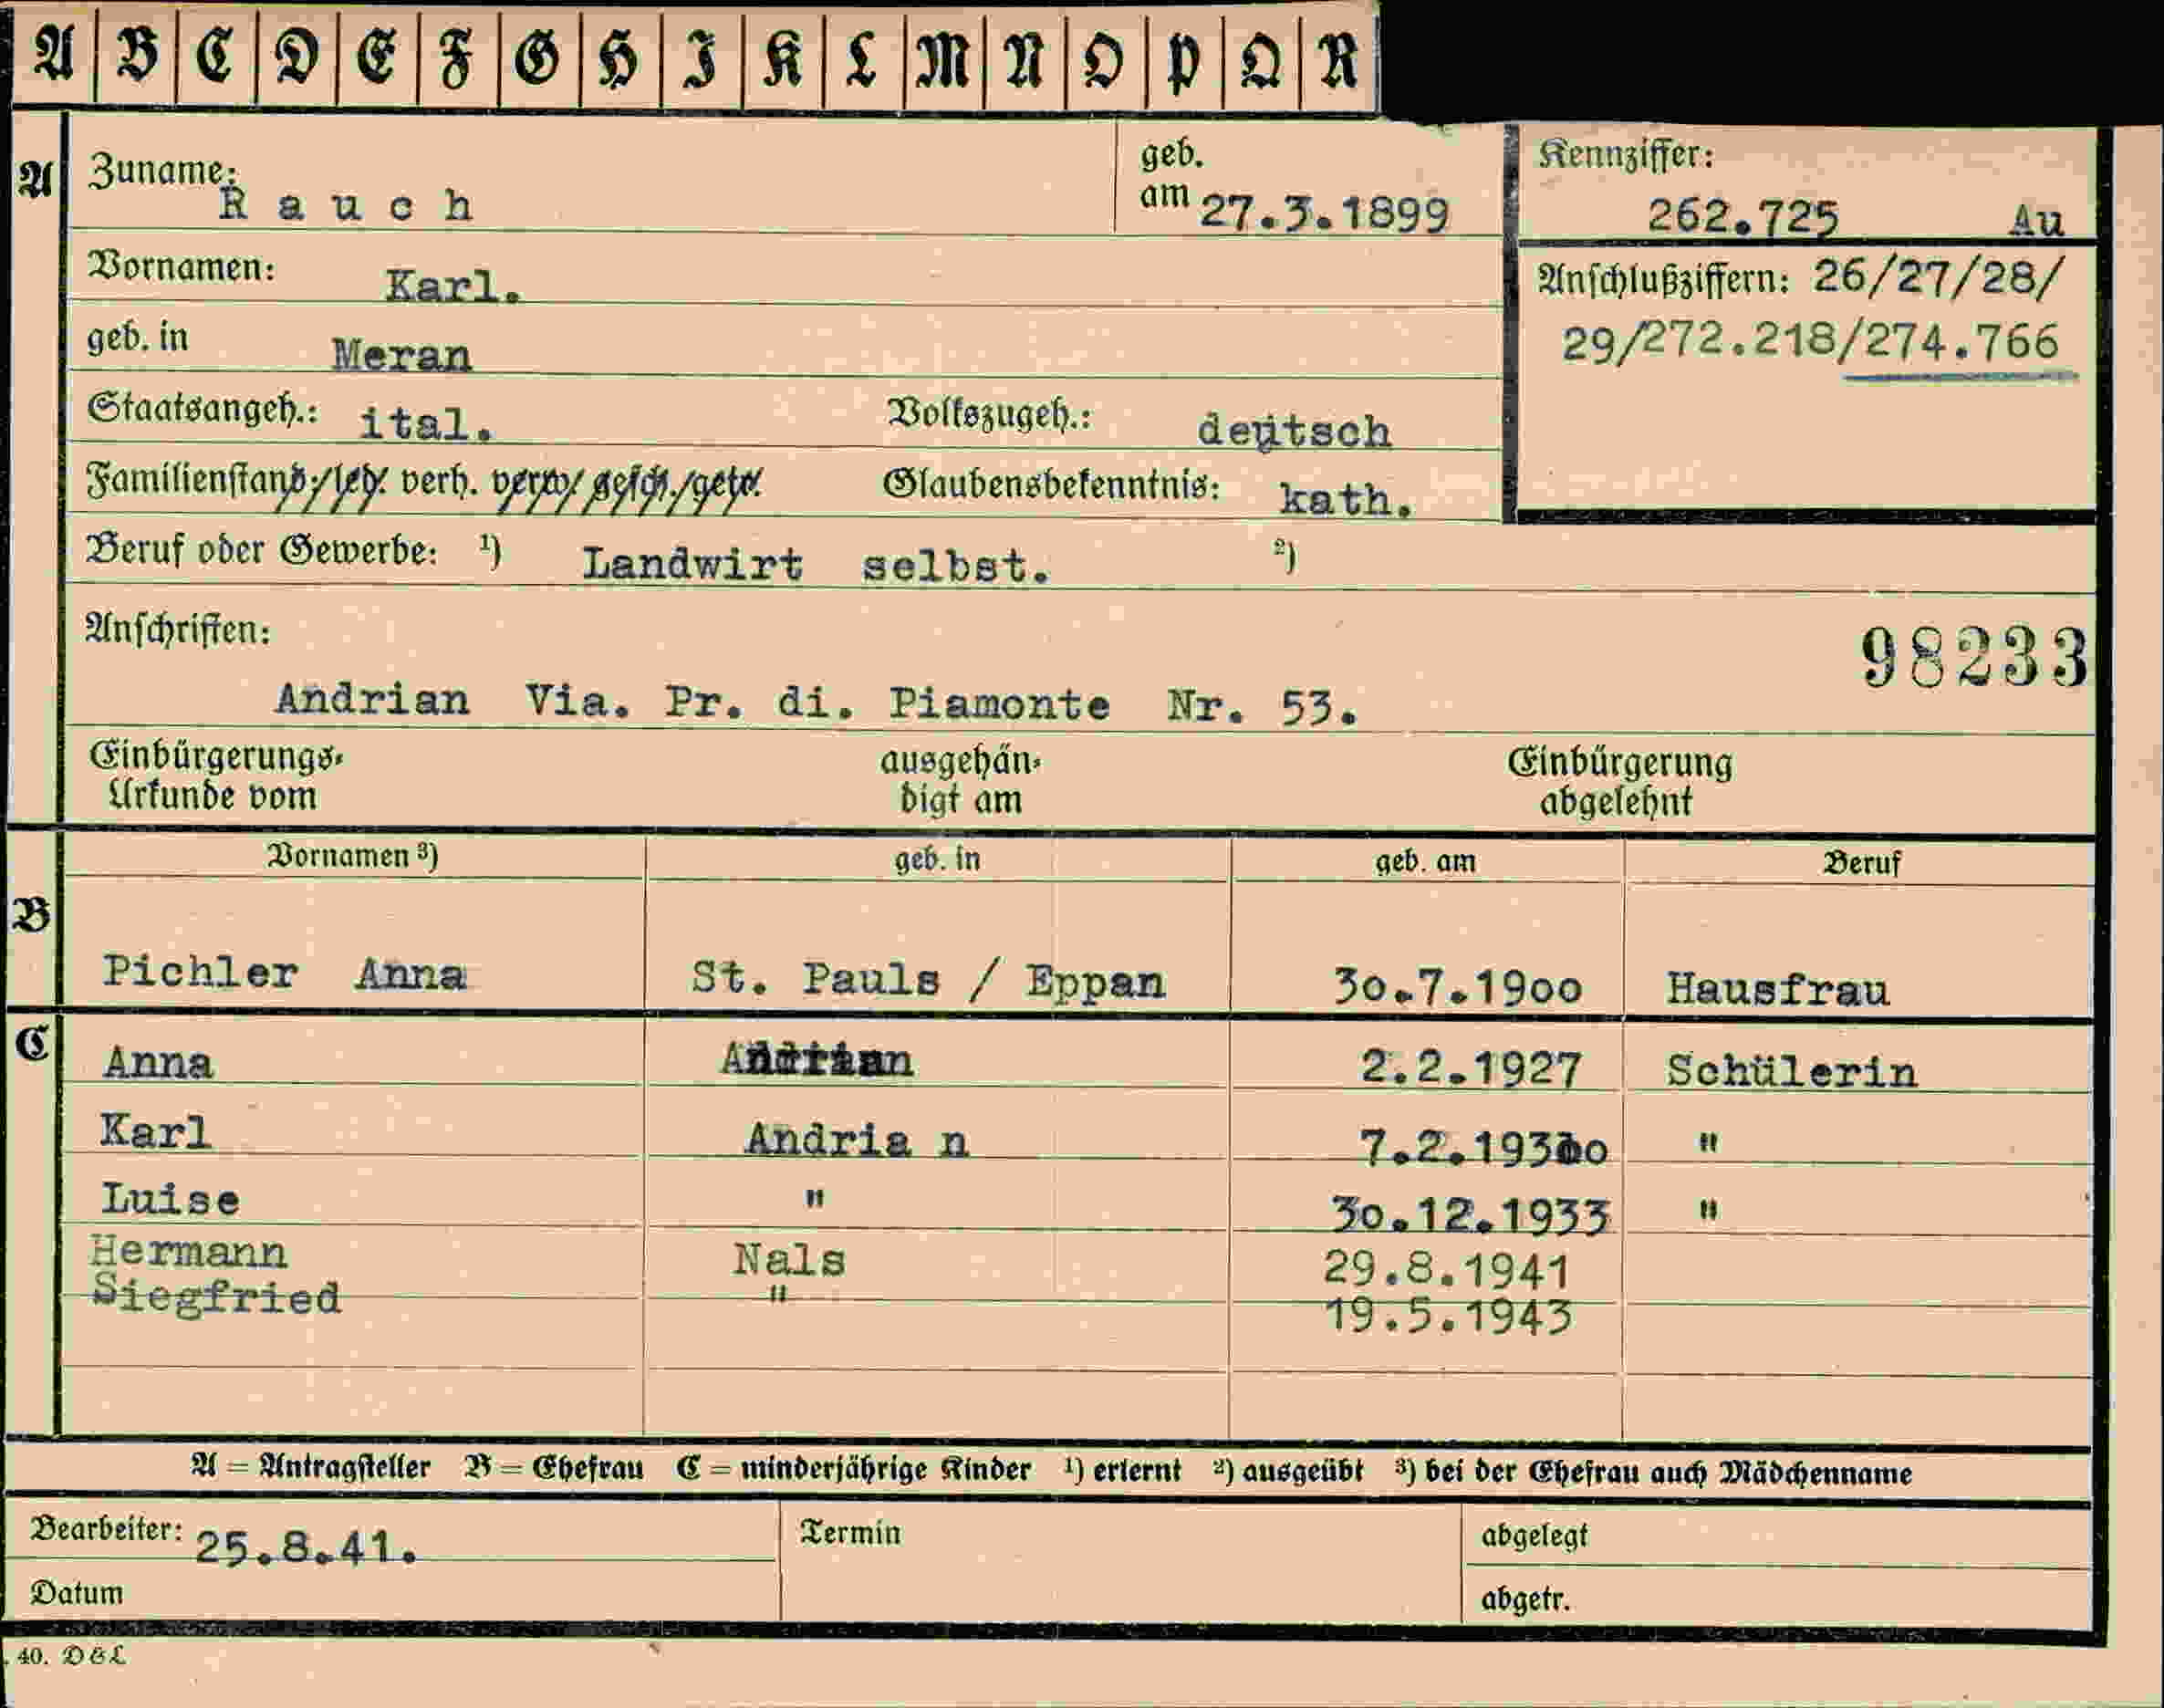 A B C D E F G H I K L M N O P Q R
A Zuname: Rauch geb. am 27.3.1899 Kennziffer: 262.725 Au
Vornamen: Karl. Anschlußziffern: 26/27/28/
geb. in Meran 29/272.218/274.766
Staatsangeh.: ital. Volkszugeh.: deutsch
Familienstand: led. verh. verw. gesch./getr. Glaubensbekenntnis: kath.
Beruf oder Gewerbe: ¹) Landwirt selbst. ²)
Anschriften: 98233
Andrian Via. Pr. di. Piamonte Nr. 53.
Einbürgerungs- ausgehän- Einbürgerung
Urkunde vom digt am abgelehnt
Vornamen ³) geb. in geb. am Beruf
B
Pichler Anna St. Pauls / Eppan 30.7.1900 Hausfrau
C Anna Andrian 2.2.1927 Schülerin
Karl Andria n 7.2.1930 "
Luise " 30.12.1933 "
Hermann Nals 29.8.1941
Siegfried " 19.5.1943
A = Antragsteller B = Ehefrau C = minderjährige Kinder ¹) erlernt ²) ausgeübt ³) bei der Ehefrau auch Mädchenname
Bearbeiter: 25.8.41. Termin abgelegt
Datum abgetr.
40. DEL